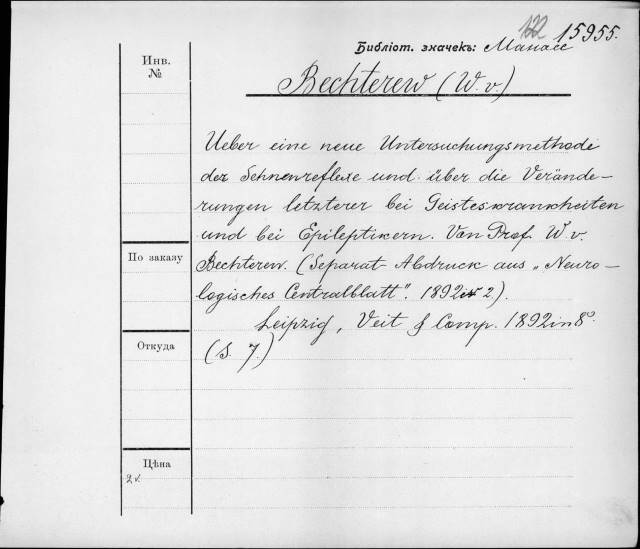 122 15955.
Библіот. значекъ: Манасс
Инв. №
Bechterew (W. v.)
Ueber eine neue Untersuchungsmethode
der Sehnenreflexe und über die Verände-
rungen letzterer bei Geisteskrankheiten
und bei Epileptikern. Von Prof. W. v.
По заказу
Bechterew. (Separat-Abdruck aus „Neuro-
logisches Centralblatt". 1892 № 2).
Leipzig, Veit & Comp. 1892 in 8°.
Откуда
(S. 7.)
Цѣна
2 v.